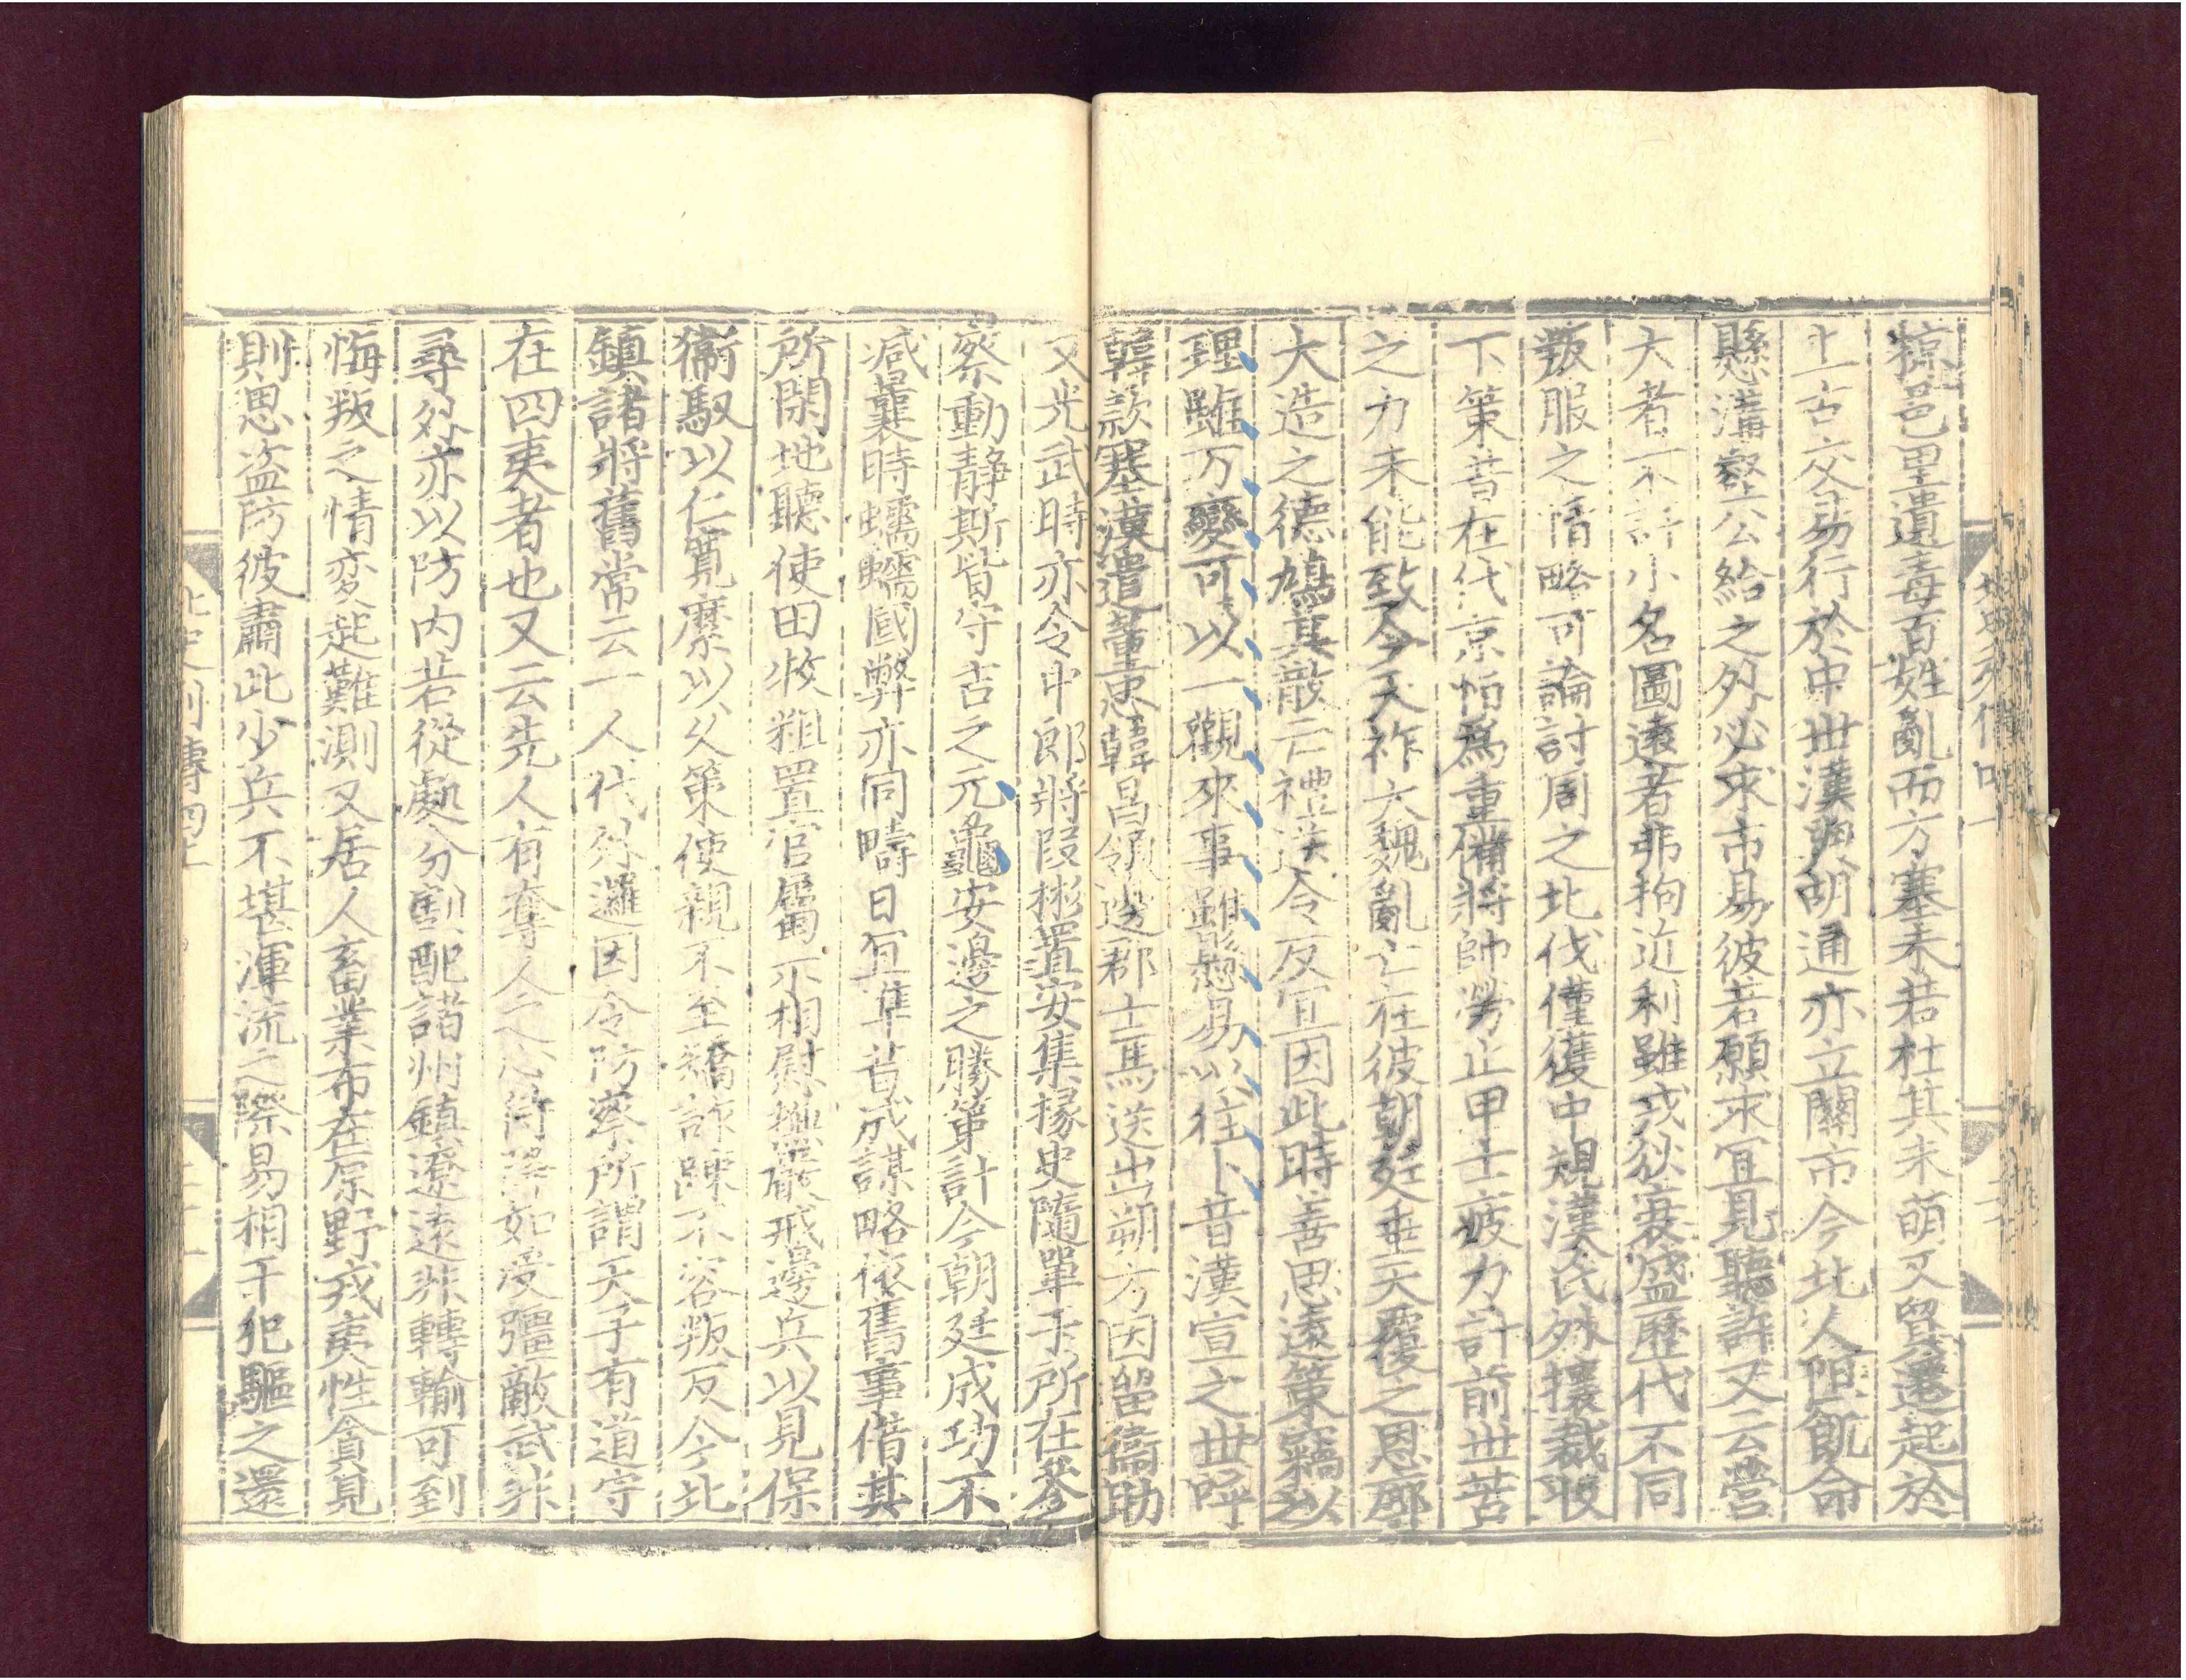 掠邑里遺毒百姓亂而方塞未若杜其未萌又貿遷起於
上古交易行於中世漢與胡通亦立關市今北人阻飢命
懸溝壑公給之外必求市易彼若願求冝見聽許又云營
大者不計小名圖遠者弗拘近利雖戎狄衰盛歷代不同
叛服之情略可論討周之北伐僅獲中規漢氏外攘裁收
下策昔在代京恒爲重備將帥勞止甲士疲力計前世苦
之力未能致今天祚大魏亂亡在彼朝廷垂天覆之恩廓
大造之德鳩其散亡禮送令反宜因此時善思遠策竊以
理雖万變可以一觀來事雖懸易以往卜昔漢宣之世呼
韓款塞漢遣董忠韓昌領邊郡士馬送出朔方因留衛助
又光武時亦令中郎將叚彬置安集掾史隨單于所在參
察動静斯皆守吉之元龜安邊之勝策計今朝廷成功不
減曩時蠕蠕國弊亦同疇日冝準昔成謀略依舊事借其
所閑地聽使田牧粗置官屬示相慰撫嚴戒邊兵以見保
衛馭以仁寛縻以久策使親不至矯詐踈不容叛反今北
鎮諸將舊常云一人代外邏因令防察所謂天子有道守
在四夷者也又云先人有奪人之心待降如受彊敵武非
尋外亦以防内若從處分割配諸州鎮遼遠非轉輸可到
悔叛之情变起難測又居人畜業布在原野戎夷性貪見
則思盜防彼肅此少兵不堪渾流之際易相干犯驅之還
北史列傳四十